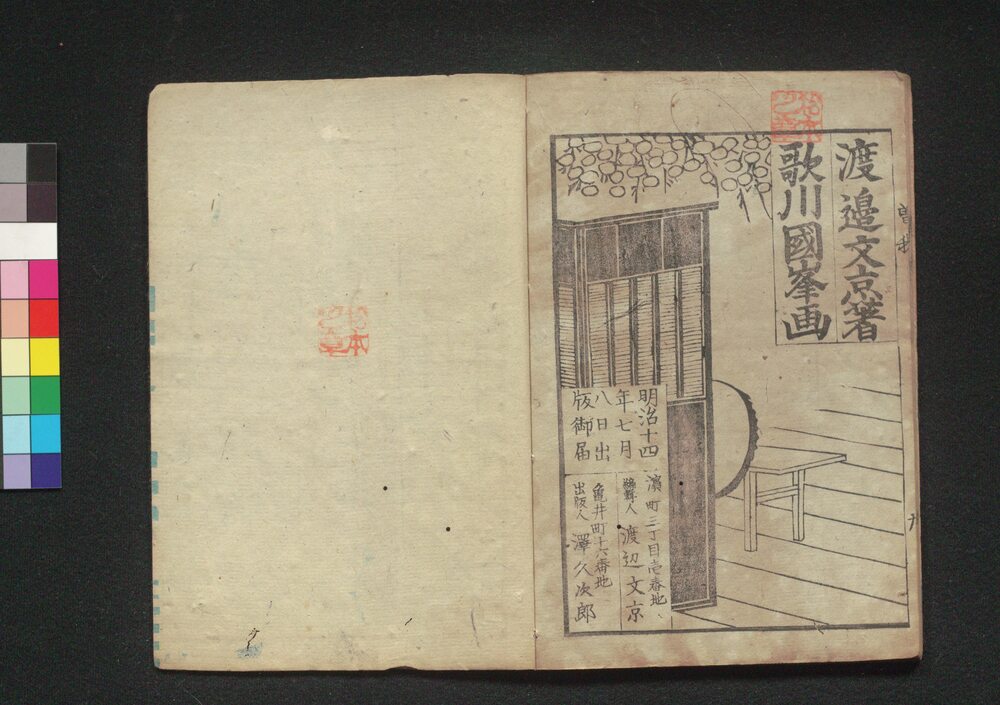 渡邉文京著
歌川國峯画
曽我
九
明治十四
年七月
八日出
版御届
濵町三丁目壱番地
編輯人 渡辺文京
亀井町十六番地
出版人 澤久次郎